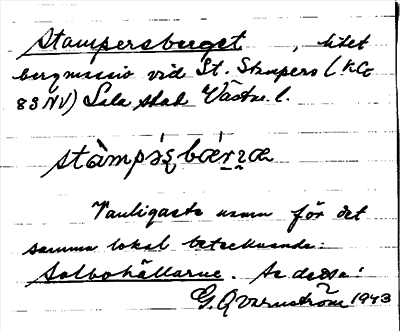 Stampersberget, litet
bergmassiv vid St. Stampers (KCo
83 NV) Sala stad Västm. l.
stàmpı̀ʂbær̨æ
Vanligaste namn för det
samma lokal betecknande:
Salbohällarne. Se dessa!
G. Qvarnström 1943